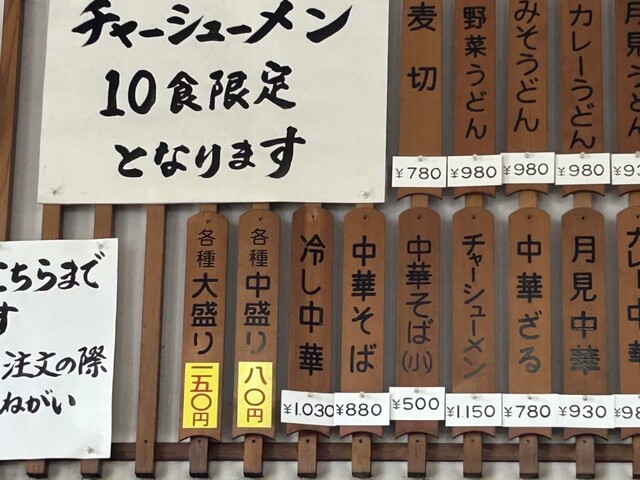 チャーシューメン
10食限定
となります
こちらまで
す
注文の際
ねがい
麦切
¥780
野菜うどん
¥980
みそうどん
¥980
カレーうどん
¥980
月見うどん
各種大盛り
一五〇円
各種中盛り
八〇円
冷し中華
¥1.030
中華そば
¥880
中華そば(小)
¥500
チャーシューメン
¥1.150
中華ざる
¥780
月見中華
¥930
カレー中華